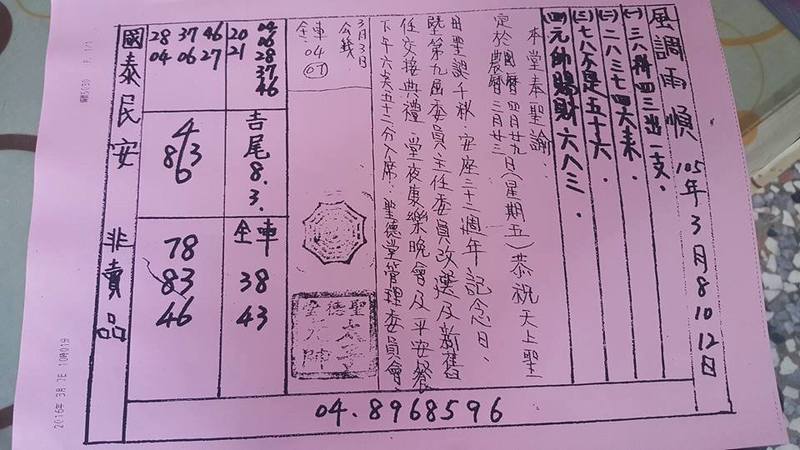 風調雨順 105年3月8 10 12日
(一)三八科四三出一支.
(二)二八三七四六來.
(三)七八不是五十六.
(四)元帥賜財六八三.
本堂奉聖諭:
定於國曆四月廿九日(星期五)恭祝天上聖
農曆三月廿三
母聖誕千秋.安座三十二週年記念日.
暨第九屆委員主任委員改選及新舊
任交接典禮.當夜東樂晚會及平安餐
下午六点五十二分入席.聖德堂管理委員會.
3月3日
公錢
全車
04
07
聖德堂
太子
元帥
20 04
21 06
28
37
46
28 37 46
04 06 27
吉尾 8.3.
4
8 3
6
全車
38
43
78
83
46
國泰民安 非賣品
04.8968596
2016年 3月 7日 10時01分